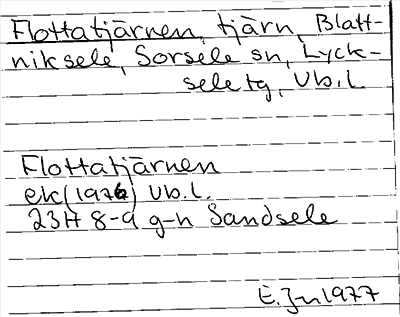 Flottatjärnen, tjärn, Blatt-
niksele, Sorsele sn, Lyck-
sele tg, Vb.l
Flottatjärnen
ek (1976) Vb.l.
23H 8-9 g-h Sandsele
E. Jn 1977